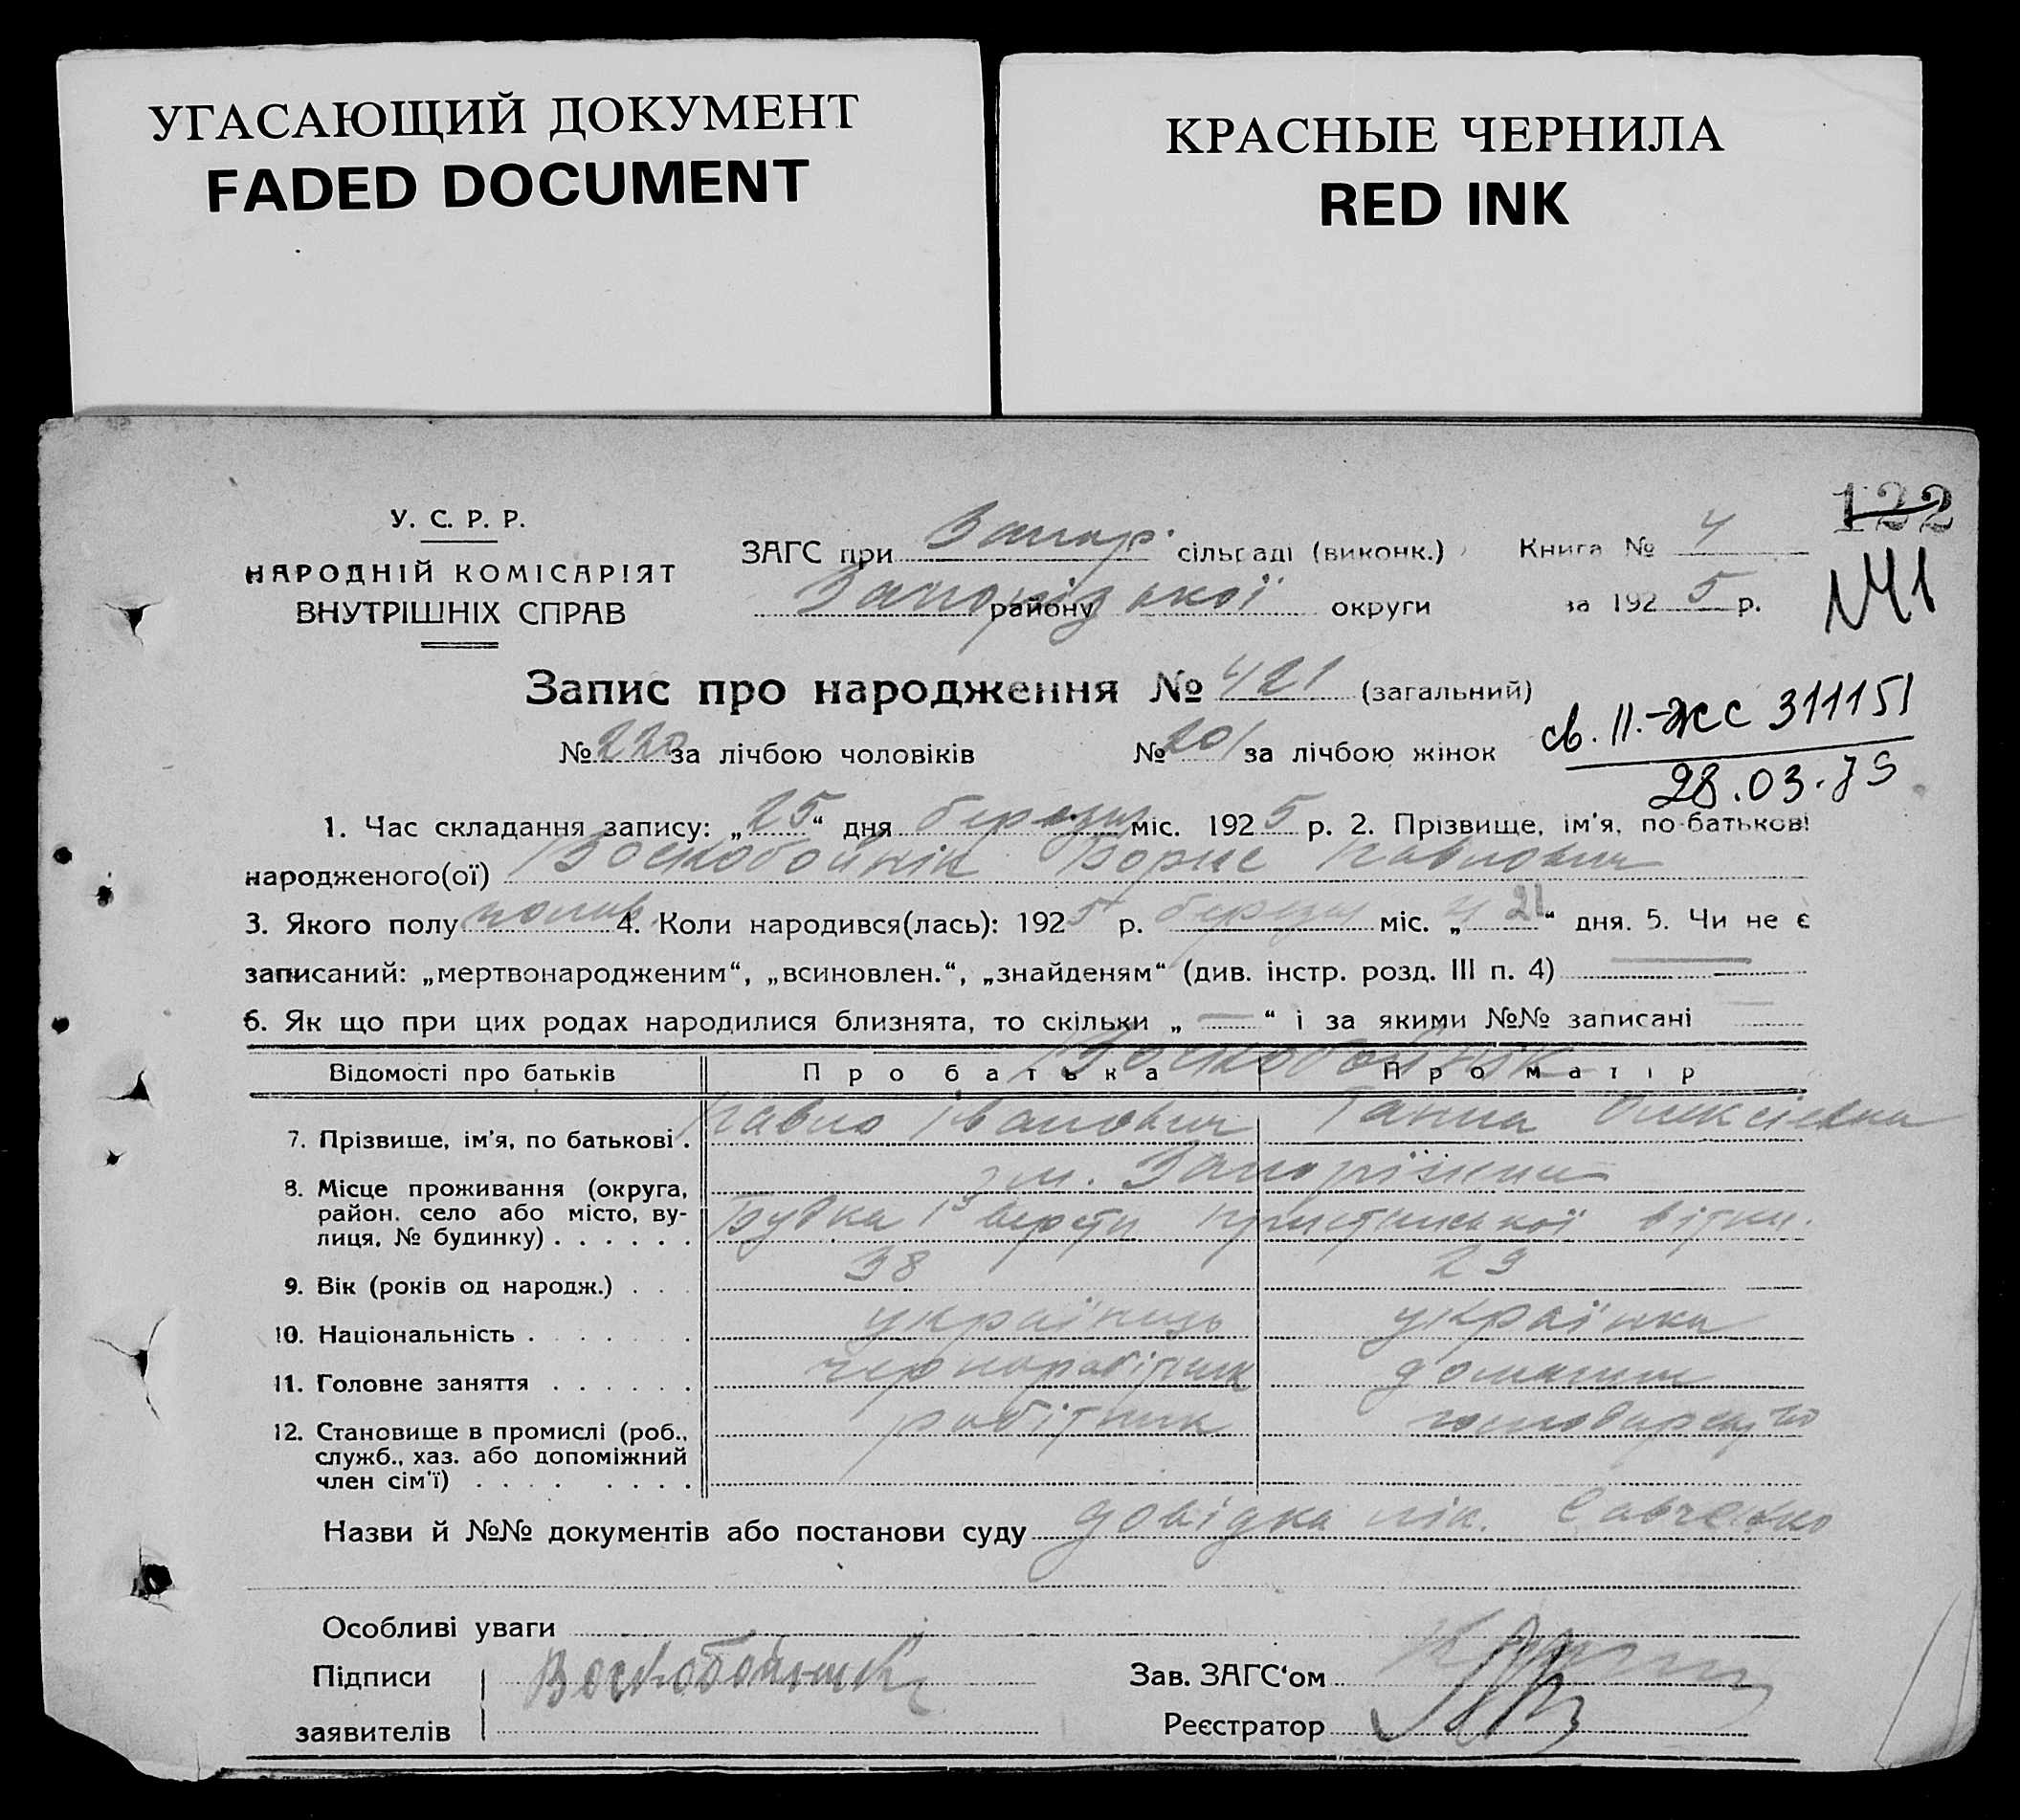 УГАСАЮЩИЙ ДОКУМЕНТ
FADED DOCUMENT
КРАСНЫЕ ЧЕРНИЛА
RED INK
122
У. С. Р. Р.
НАРОДНІЙ КОМІСАРІЯТ
ВНУТРІШНІХ СПРАВ
ЗАГС при Запор. сільраді (виконк.) Книга № 4
Запорізької району округи за 1925 р.
141
Запис про народження № 421 (загальний)
№ 220 за лічбою чоловіків № 201 за лічбою жінок
св. II-ЖС 311151
28.03.79
1. Час складання запису: „25“ дня березня міс. 1925 р. 2. Прізвище, ім'я, по-батькові
народженого(ої) Воскобойнік Борис Павлович
3. Якого полу чолов. 4. Коли народився(лась): 1925 р. березня міс. „21“ дня. 5. Чи не є
записаний: „мертвонародженим“, „всиновлен.“, „знайденям“ (див. інстр. розд. III п. 4) —
6. Як що при цих родах народилися близнята, то скільки „—“ і за якими №№ записані —
Воскобойнік
Відомості про батьків Про батька Про матір
7. Прізвище, ім'я, по батькові . Павло Іванович Ганна Олексіевна
8. Місце проживання (округа, м. Запоріжжя
район, село або місто, ву- Будка 13 версти пристанської вітки.
лиця, № будинку) . . . . . .
9. Вік (років од народж.) . . . 38 29
10. Національність . . . . . . . українець українка
11. Головне заняття . . . . . . чорноробітник домашнє
12. Становище в промислі (роб., робітник господарство
служб., хаз. або допоміжний
член сім'ї) . . . . . . . .
Назви й №№ документів або постанови суду довідка лік. Савченко
Особливі уваги
Підписи Воскобойник Зав. ЗАГС'ом
заявителів Реєстратор